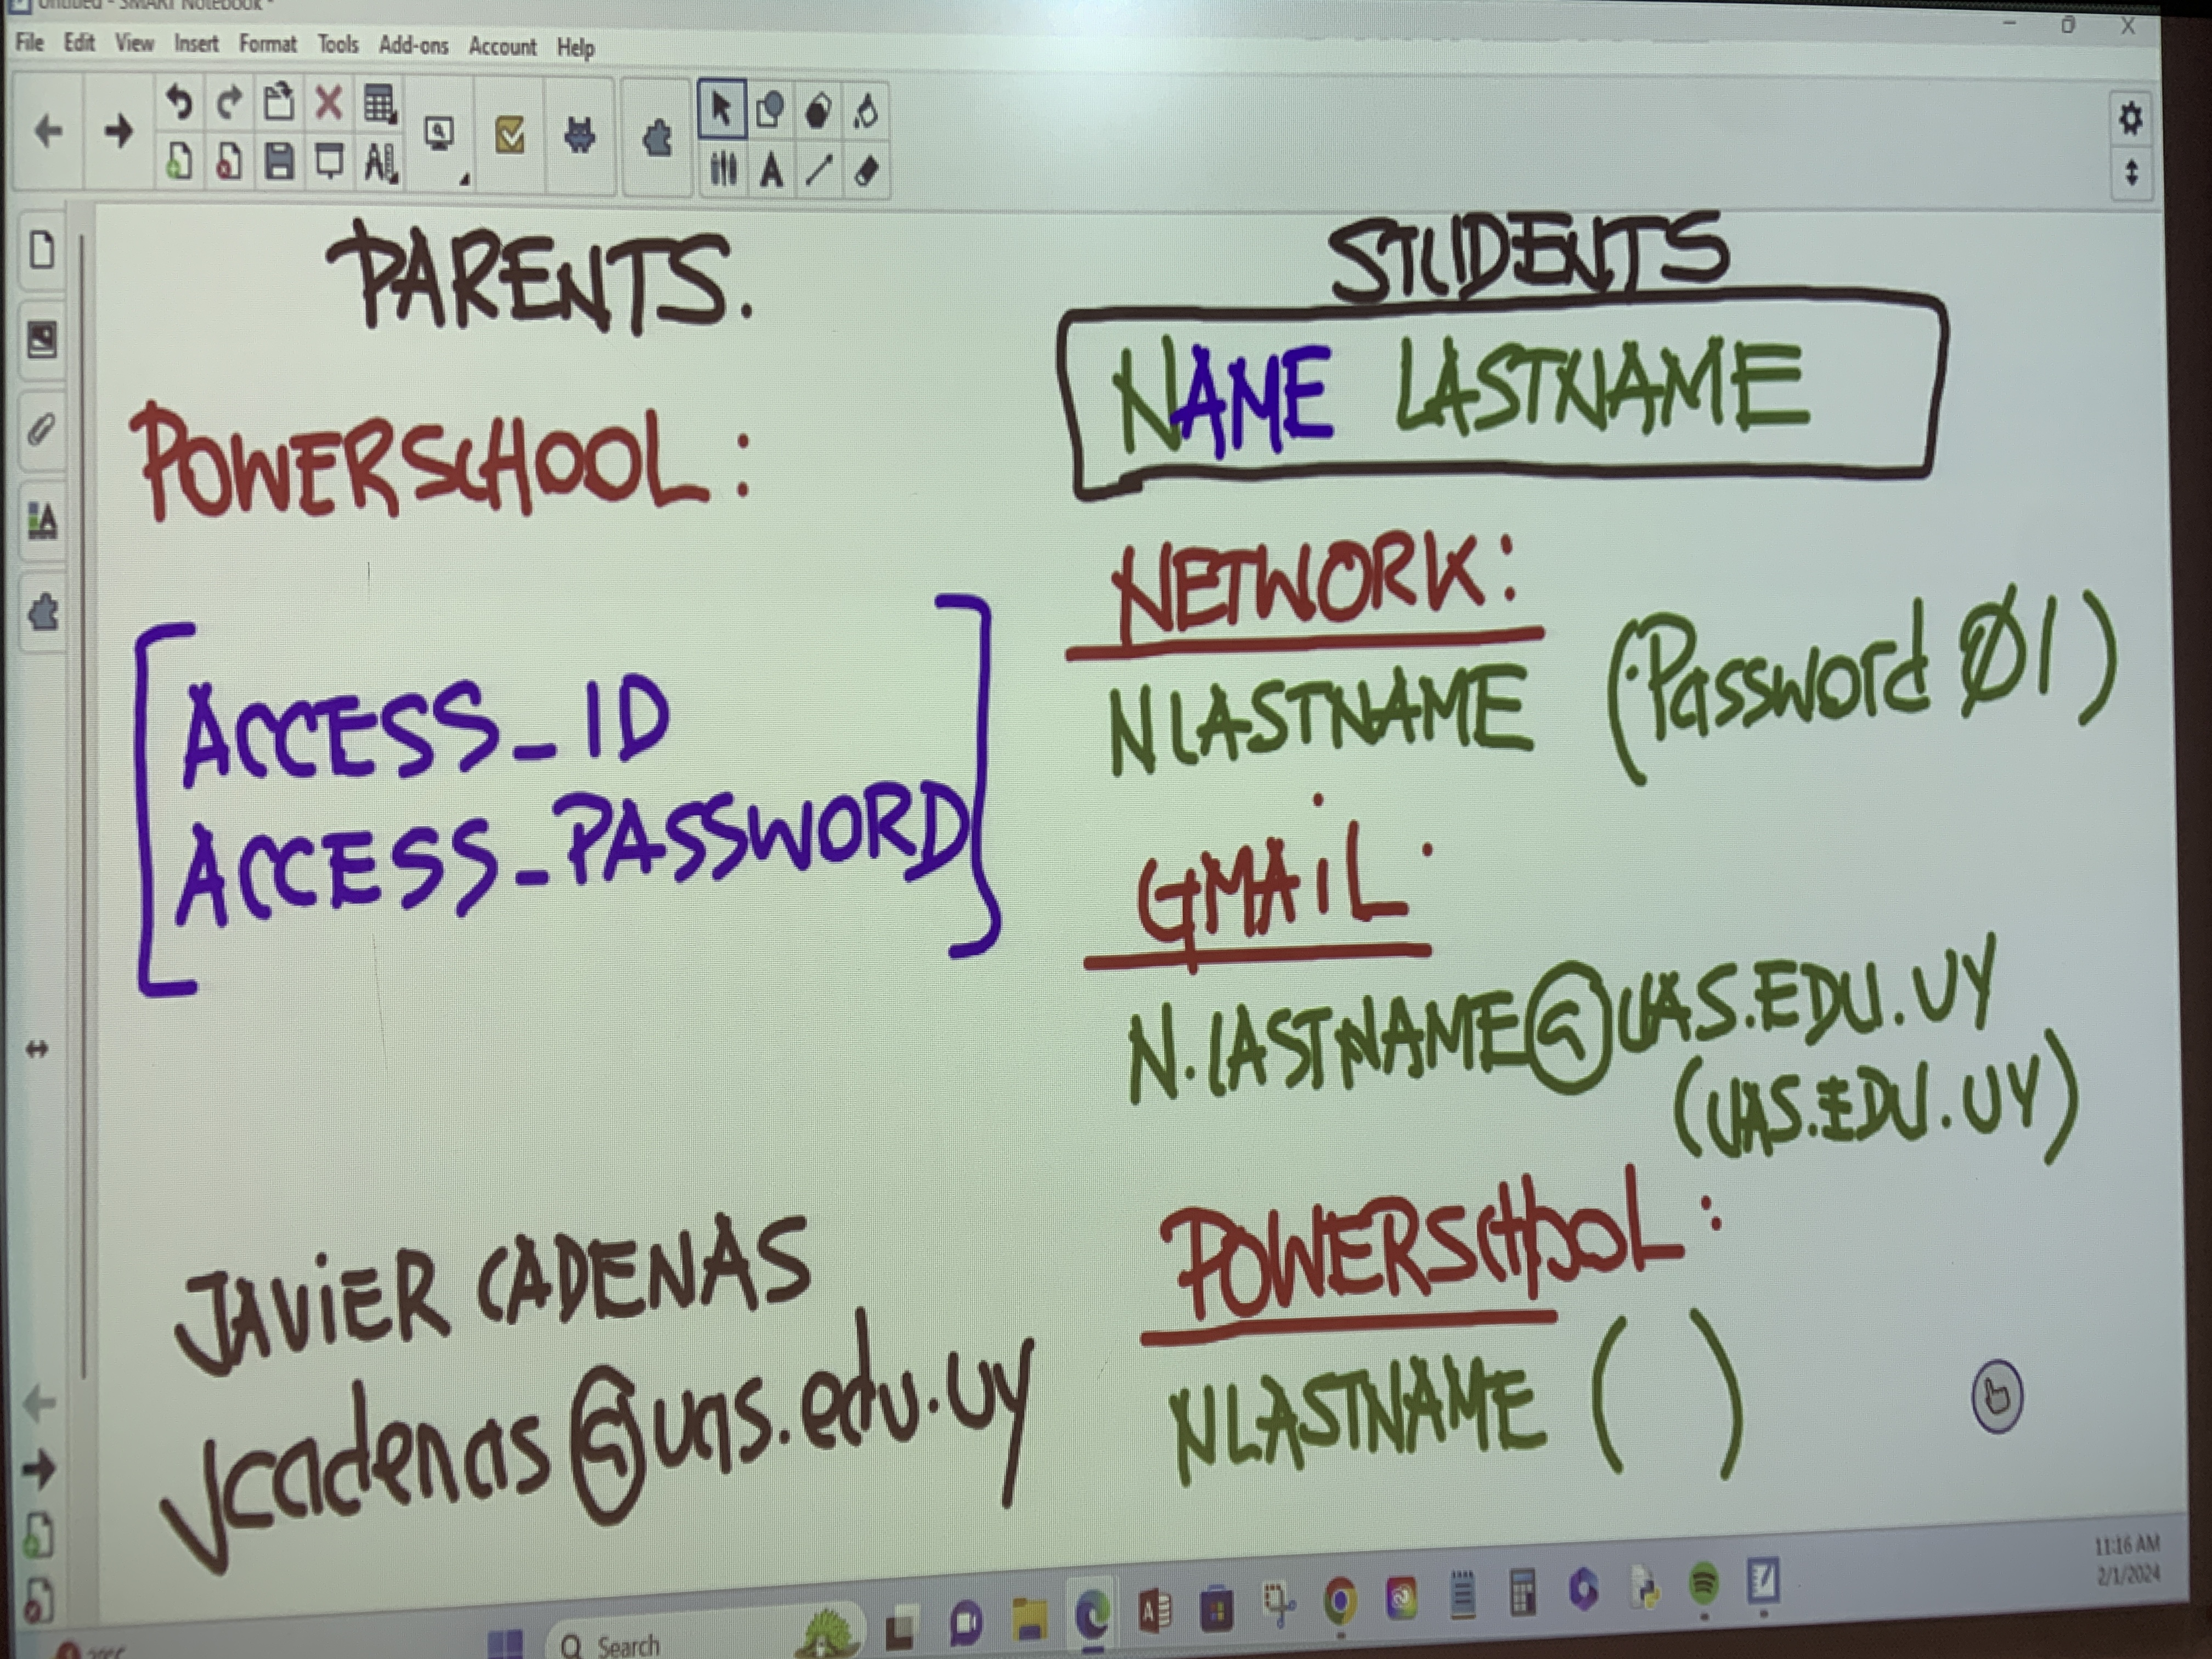 Untitled - SMART Notebook *
File Edit View Insert Format Tools Add-ons Account Help
PARENTS.
POWERSCHOOL:
ACCESS_ID
ACCESS_PASSWORD
JAVIER CADENAS
Jcadenas@uas.edu.uy
STUDENTS
NAME LASTNAME
NETWORK:
NLASTNAME (Password 01)
GMAIL:
N.LASTNAME@UAS.EDU.UY
(UAS.EDU.UY)
POWERSCHOOL:
NLASTNAME ( )
Search
11:16 AM
2/1/2024